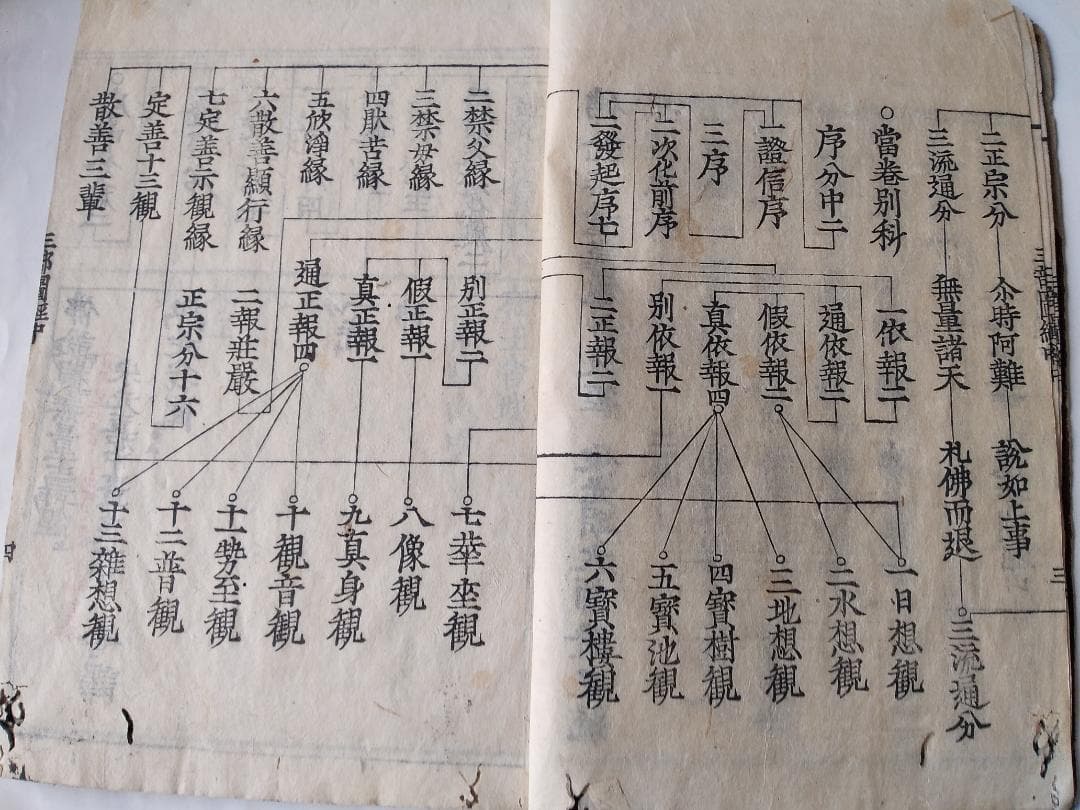 二正宗分
尒時阿難
說如上事
三流通分
無量諸天
礼佛而退
三流通分
當卷別科
序分中二
一證信序
三序
二次化前序
二發起序七
一依報二
通依報二
假依報二
真依報四
別依報一
二正報二
一日想観
二水想観
三地想観
四寳樹観
五寳池観
六寳樓観
三
二禁父縁
三禁母縁
四猒苦縁
五欣淨縁
六散善顯行縁
七定善示観縁
定善十三観
散善三輩
別正報二
假正報一
真正報一
通正報四
二報莊嚴
正宗分十六
七華坐観
八像観
九真身観
十観音観
十一勢至観
十二普観
十三雜想観
四